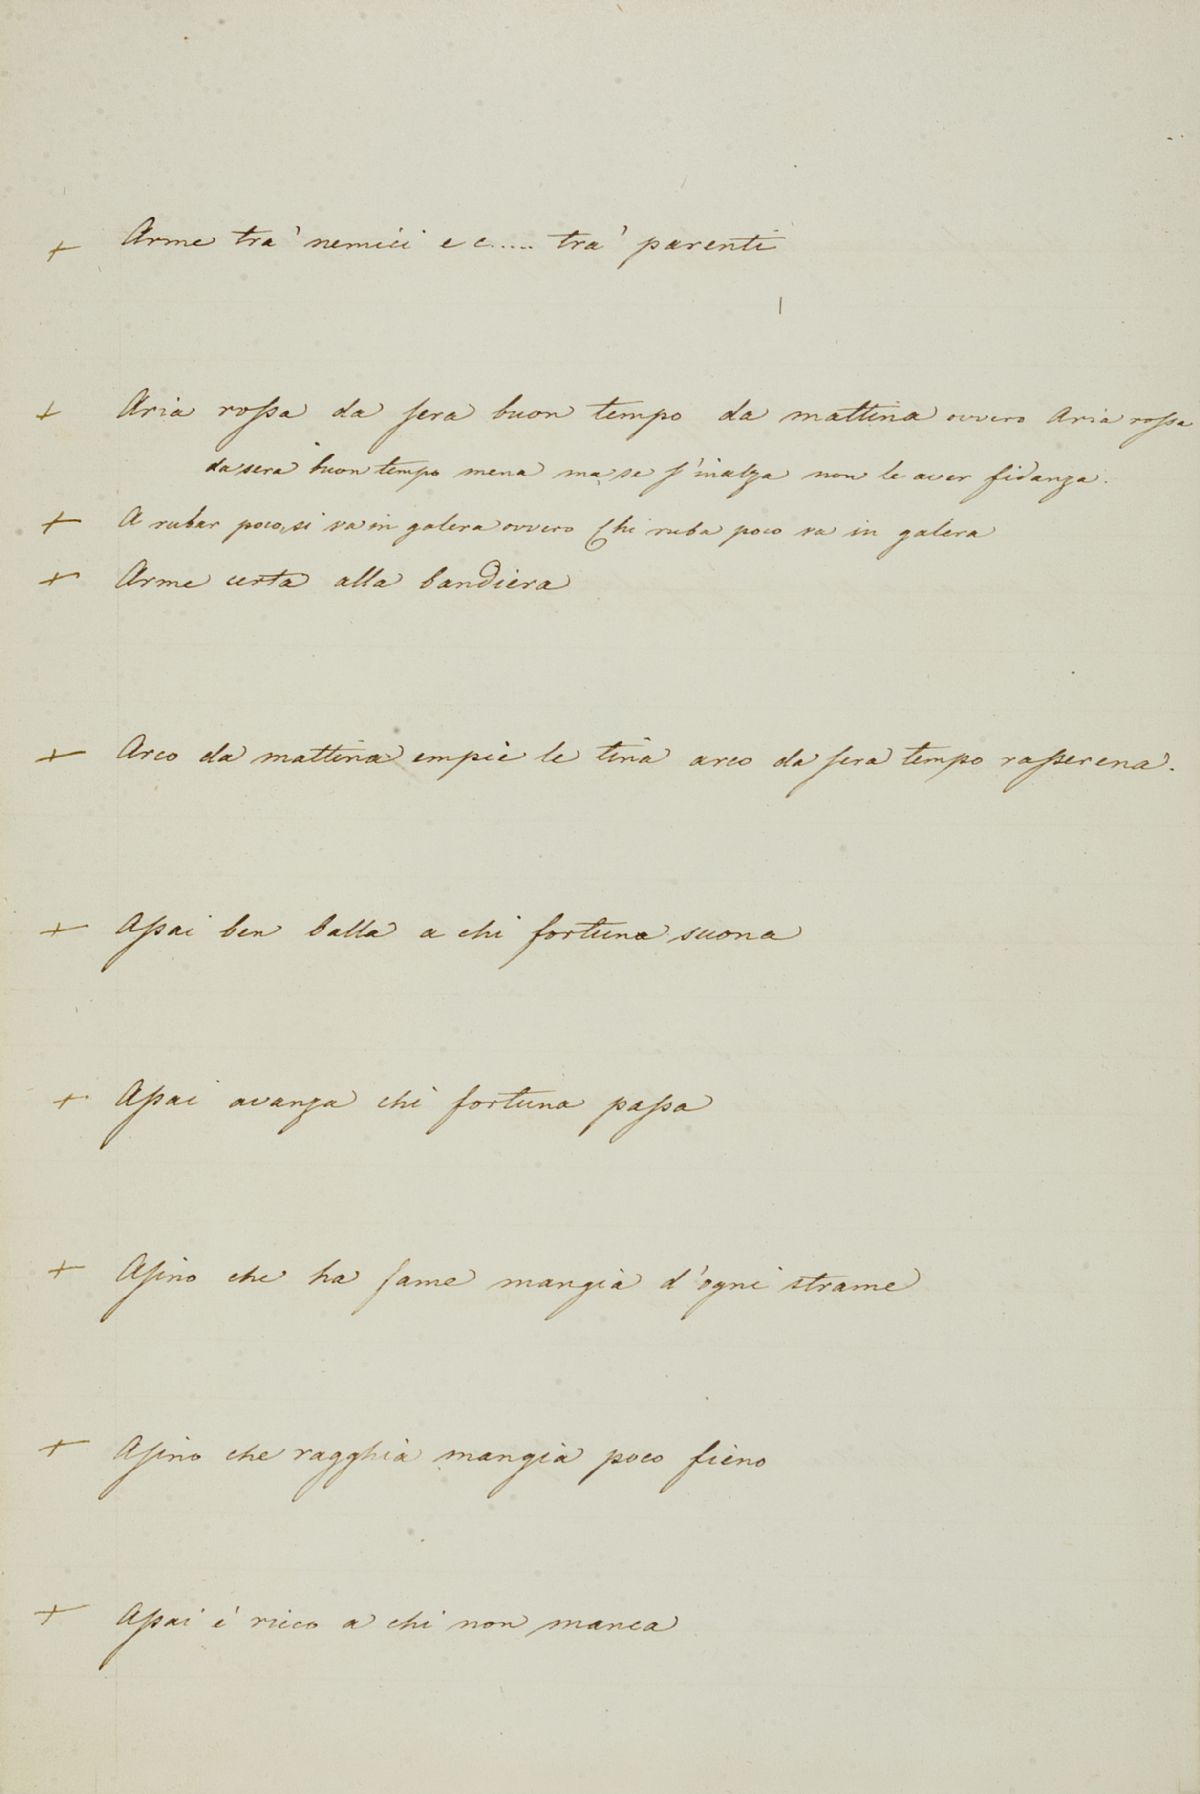 + Arme tra' nemici e c..... tra' parenti
+ Aria rossa da sera buon tempo da mattina ovvero Aria rossa
da sera buon tempo mena ma se s'inalza non le aver fidanza.
+ A rubar poco, si va in galera ovvero Chi ruba poco va in galera
+ Arme certa alla bandiera
+ Arco da mattina empie le tina arco da sera tempo rasserena.
+ Assai ben balla a chi fortuna suona
+ Assai avanza chi fortuna passa
+ Asino che ha fame mangia d'ogni strame
+ Asino che ragghia mangia poco fieno
+ Assai é ricco a chi non manca